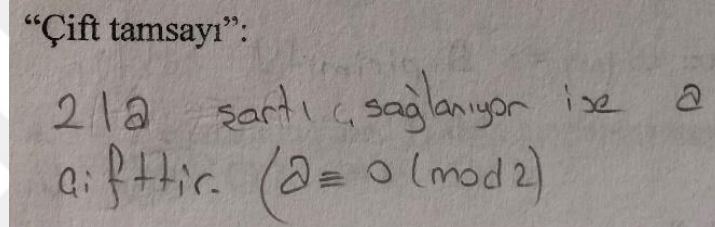 “Çift tamsayı”:
2|a şartı sağlanıyor ise a
çifttir. (a ≡ 0 (mod 2)